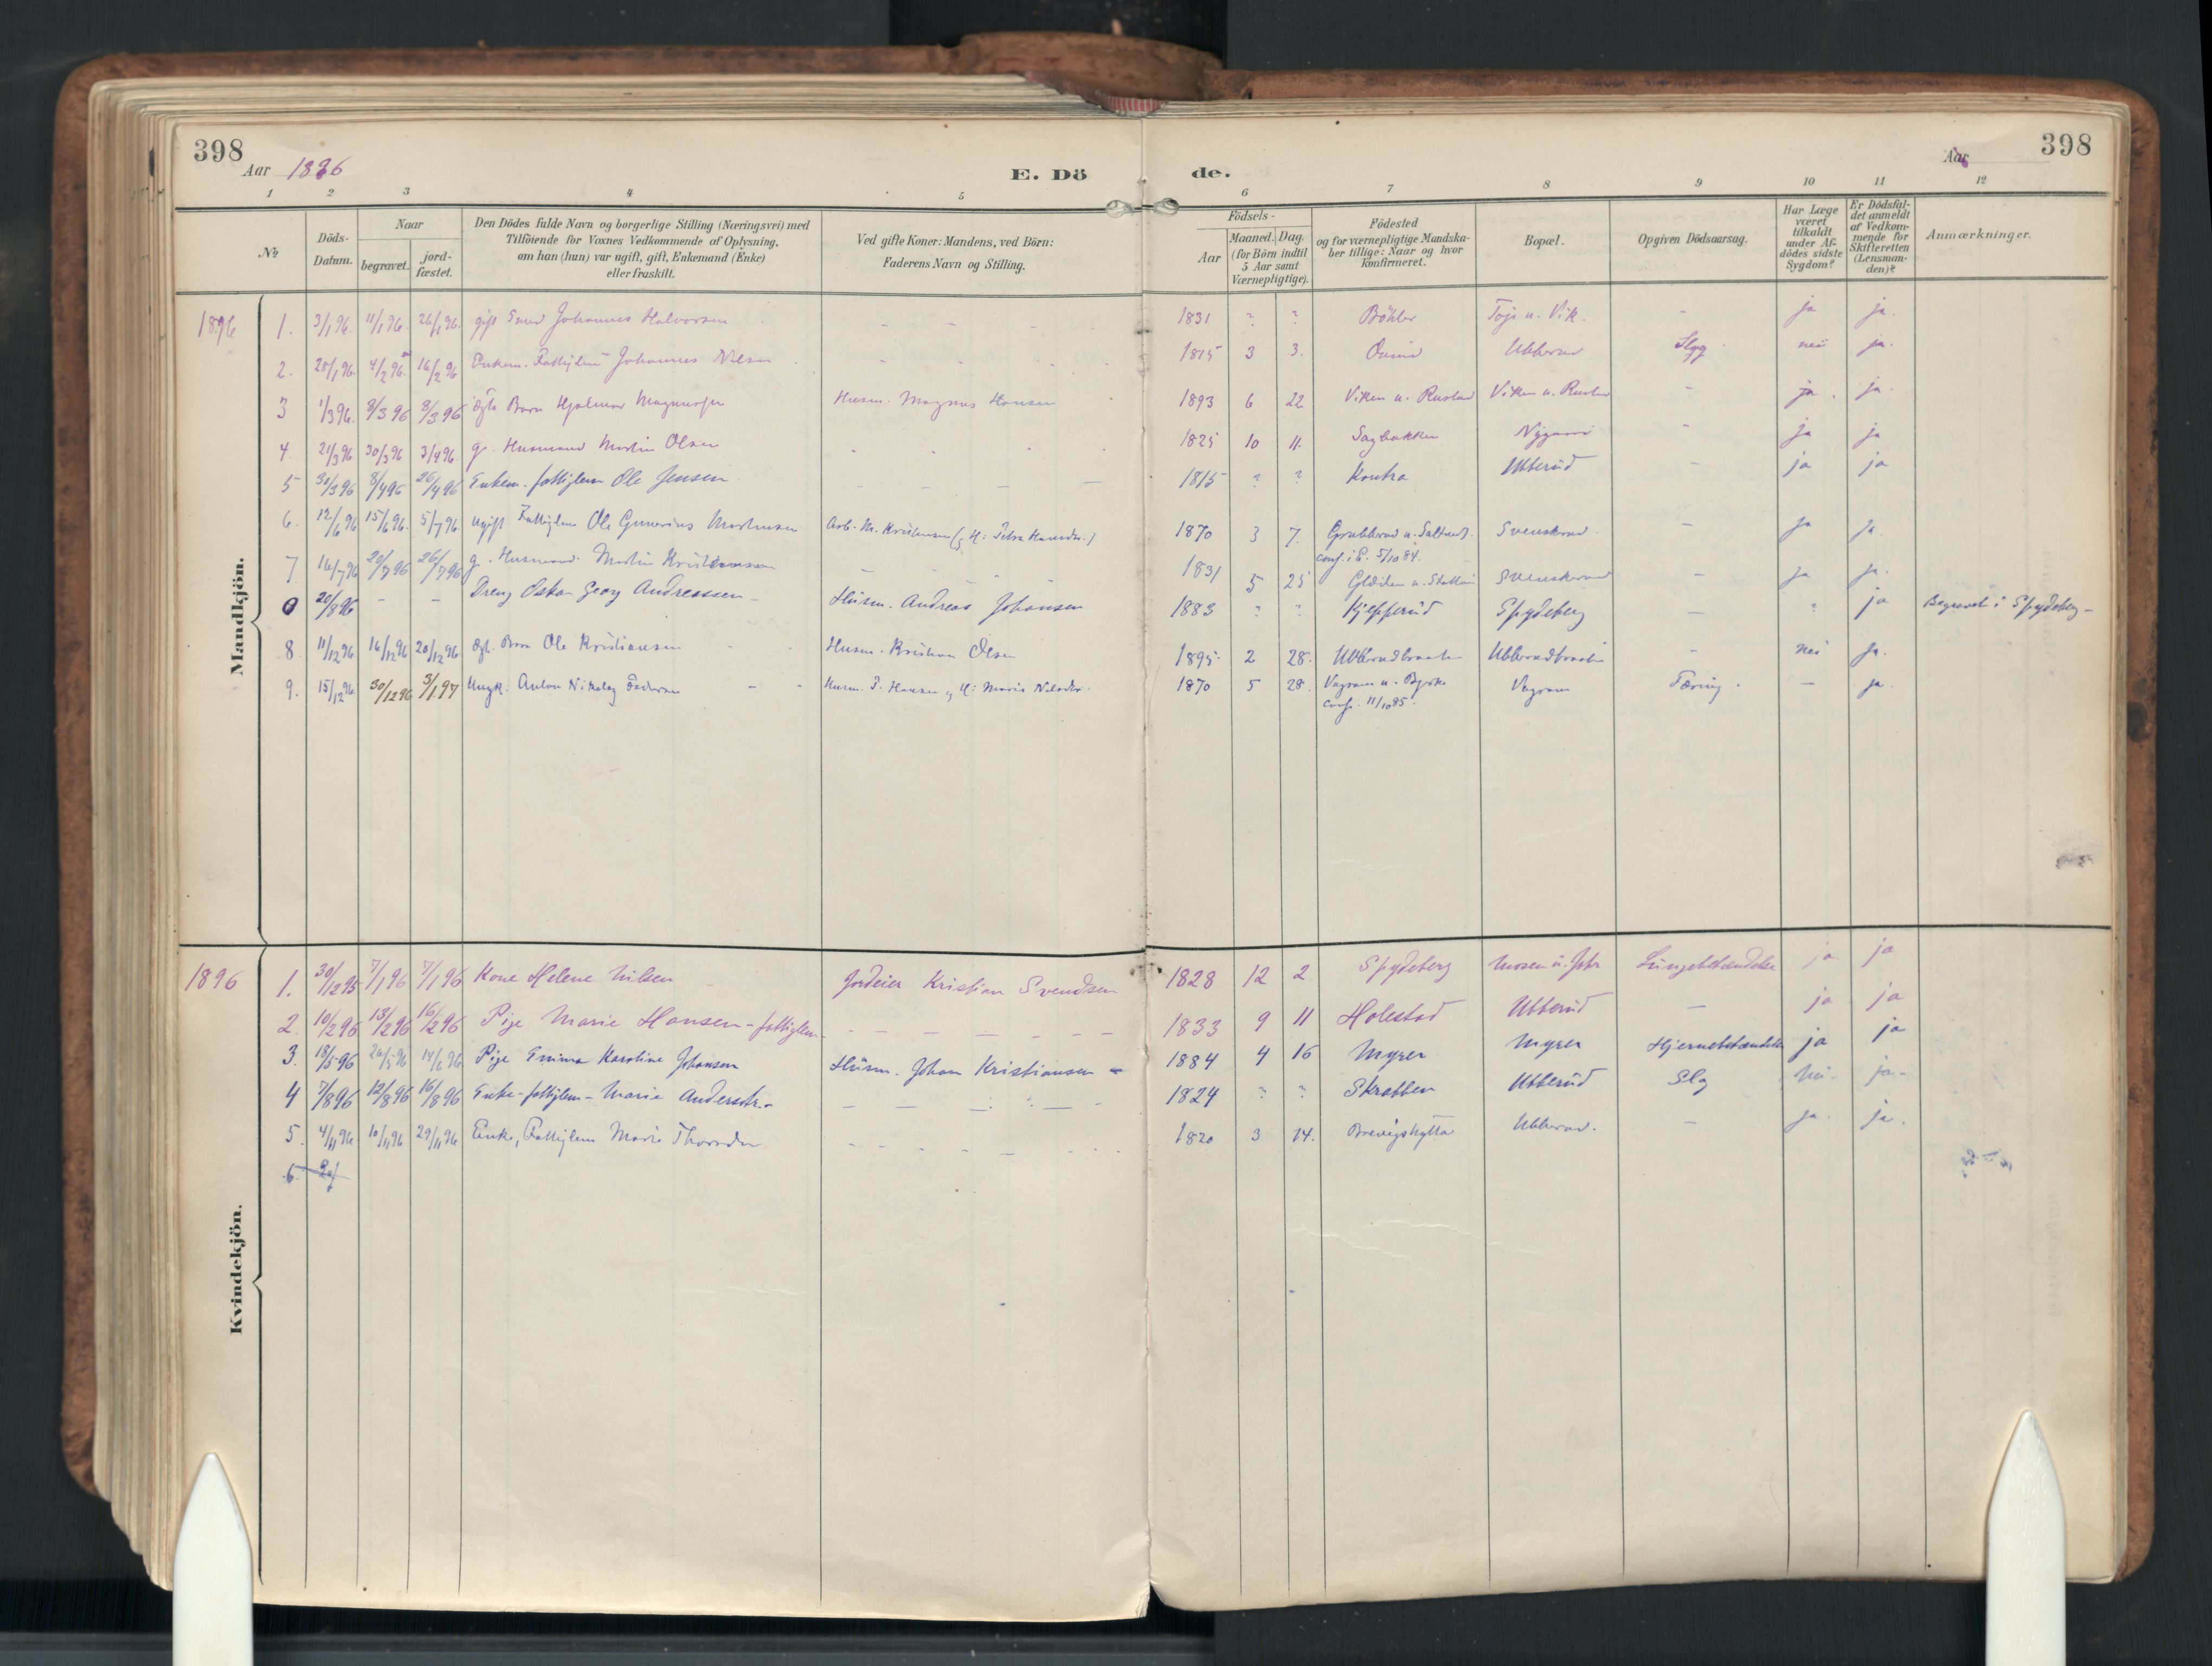 398
Aar 1896
E. Dö
de.
Aar
398
1 2 3 4 5 6 7 8 9 10 11 12
№
Döds-
Datum.
Naar
begravet.
jord-
fæstet.
Den Dödes fulde Navn og borgerlige Stilling (Næringsvei) med
Tilföiende for Voxnes Vedkommende af Oplysning,
om han (hun) var ugift, gift, Enkemand (Enke)
eller fraskilt.
Ved gifte Koner: Mandens, ved Börn:
Faderens Navn og Stilling.
Födsels-
Aar
Maaned. Dag.
(for Börn indtil
5 Aar samt
Værnepligtige).
Födested
og for værnepligtige Mandska-
ber tillige: Naar og hvor
konfirmeret.
Bopæl.
Opgiven Dödsaarsag.
Har Læge
været
tilkaldt
under Af-
dödes sidste
Sygdom?
Er Dödsfal-
det anmeldt
af Vedkom-
mende for
Skifteretten
(Lensman-
den)?
Anmærkninger.
Mandkjön.
1896 1. 3/1 96. 11/1 96. 26/1 96. gift Smed Johannes Halvorsen 1831 ? ? Böhler Toje u. Vik. - ja ja.
2. 28/1 96. 4/2 96. 16/2 96 Enkem. Fattiglem Johannes Nilsen 1815 3 3. Ubberud nei ja.
3 1/3 96. 8/3 96 8/3 96 ægte Barn Hjalmar Magnussen Husm. Magnus Hansen 1893 6 22 Viken u. Rustad Viken u. Rustad - ja. ja.
4. 21/3 96 30/3 96 3/4 96. g. Husmand Martin Olsen 1825 10 11. Sagbakken Nygaard - ja ja
5 30/3 96 8/4 96 26/4 96 Enkem. fattiglem Ole Jensen 1815 ? ? Kontra Ubberud - ja ja
6. 12/6 96 15/6 96. 5/7 96. ugift Fattiglem Ole Gunerius Marthinsen Arb. M. Kristensen (g H: Petra Hansdtr.) 1870 3 7. Grubberud u. Saltnes. Svenskerud - ja ja.
conf. i S. 5/10 84.
7. 16/7 96 20/7 96 26/7 96 g. Husmand Martin Kristensen 1831 5 25 Glæiden u. Svenskerud - ja ja.
0 20/8 96 - - Dreng Oskar Georg Andreassen - Husm. Andreas Johansen 1883 ? ? Kjepperud Spydeberg - ? ja Begravet i Spydeberg -
8. 11/12 96 16/12 96 20/12 96 ægt. Barn Ole Kristiansen Husm. Kristian Olsen 1895. 2 28. Ubberudbraaten Ubberudbraaten - nei ja.
9. 15/12 96 30/12 96 3/1 97 Ungk. Anton Nikolay Pedersen Husm. P. Hansen g H: Marie Nilsdtr. 1870 5 28 Vagram u. Vagram Tæring. - ja.
conf. 11/10 85.
Kvindekjön.
1896 1. 30/12 95 7/1 96 7/1 96 Kone Helene Nilsen Gårdeier Kristian Svendsen 1828 12 2 Spydeberg Mosen u. Lungebetændelse ja ja
2. 10/2 96 13/2 96 16/2 96 Pige Marie Hansen - fattiglem. 1833 9 11 Holestad Ubberud - ja ja
3. 18/5 96 26/5 96 14/6 96 Pige Emma Karoline Johansen Husm. Johan Kristiansen 1884 4 16 Myrer Myrer Hjernebetændelse ja ja
4 7/8 96 12/8 96 16/8 96 Enke - fattiglem - Marie Andersdtr. - 1824 ? ? Skrabben Ubberud Slag nei - ja -
5. 4/11 96 10/11 96 29/11 96 Enke, Fattiglem Marie 1820 3 14. Brevigshytta Ubberud. - ja. ja.
6